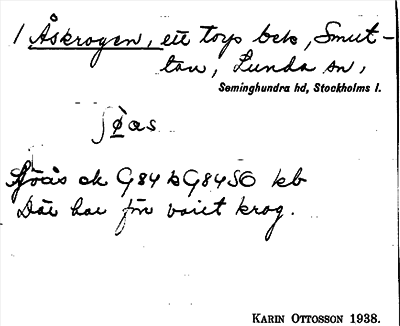 1 Åskrogen, ett torp bels, Smut-
tan, Lunda sn,
Seminghundra hd, Stockholms l.
Sjöås ek G84 b G84SO kb
Där har för varit krog.
KARIN OTTOSSON 1938.